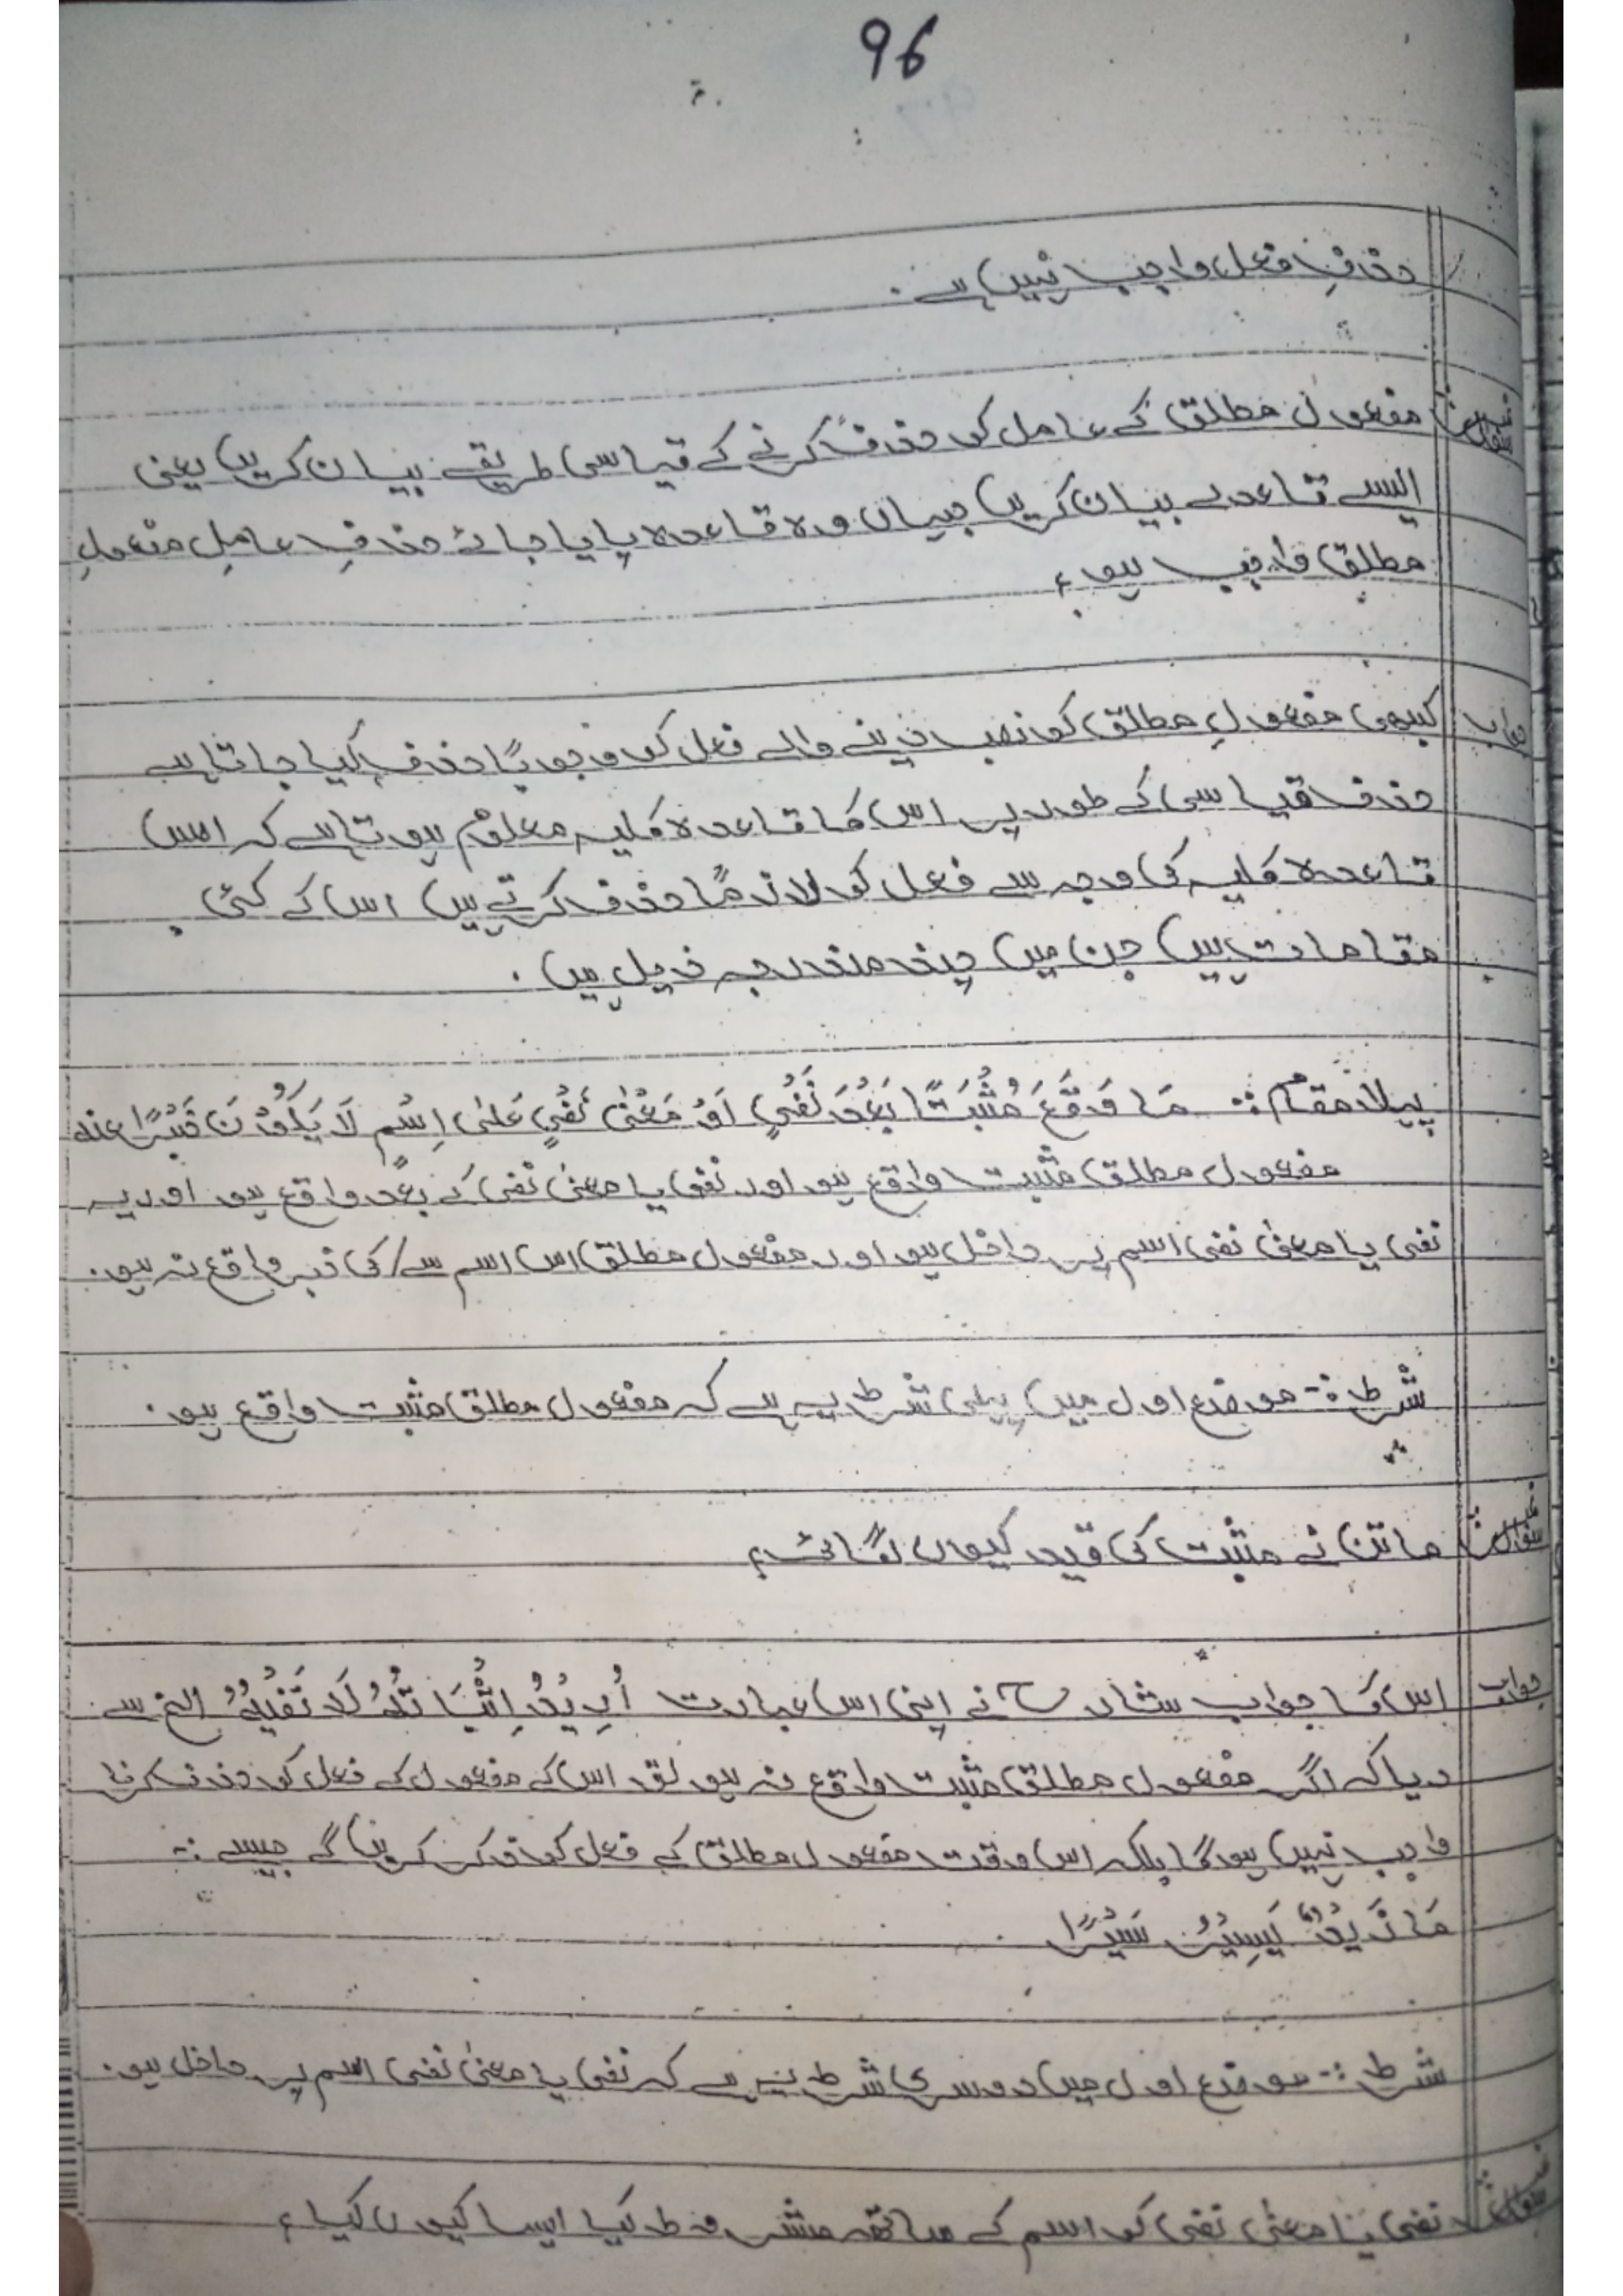 96
حذفِ فعل واجب نہیں ہے۔
سوال نمبر مفعول مطلق کے عامل کو حذف کرنے کے قیاسی طریقے بیان کریں یعنی
ایسے قاعدے بیان کریں جہاں وہ قاعدہ پایا جائے حذفِ عاملِ مفعولِ
مطلق واجب ہو؟
جواب کبھی مفعولِ مطلق کو نصب دینے والے فعل کو وجوبًا حذف کیا جاتا ہے
حذف قیاسی کے طور پر اس کا قاعدہ کلیہ معلوم ہوتا ہے کہ اس
قاعدہ کلیہ کی وجہ سے فعل کو لازمًا حذف کرتے ہیں اس کے کئی
مقامات ہیں جن میں چند مندرجہ ذیل ہیں۔
پہلا مقام :- مَا وَقَعَ مُثْبَتًا بَعْدَ نَفْيٍ اَوْ مَعْنٰى نَفْيٍ عَلٰى اِسْمٍ لَا يَكُوْنَ خَبْرًا عنه
مفعول مطلق مثبت واقع ہو اور نفی یا معنیٰ نفی کے بعد واقع ہو اور یہ
نفی یا معنیٰ نفی اسم پر داخل ہو اور مفعول مطلق اس اسم سے/کی خبر واقع نہ ہو۔
شرط :- موضع اول میں پہلی شرط یہ ہے کہ مفعول مطلق مثبت واقع ہو۔
سوال نمبر ماتن نے مثبت کی قید کیوں لگائی؟
جواب اس کا جواب شارح نے اپنی اس عبارت اُرِيْدُ اِثْبَاتُهٗ لَا نَفْيُهٗ الخ سے
دیا کہ اگر مفعول مطلق مثبت واقع نہ ہو تو اس کے مفعول کے فعل کو حذف کرنا
واجب نہیں ہوگا بلکہ اس وقت مفعول مطلق کے فعل کو ذکر کریں گے جیسے :-
مَا زَيْدٌ يَسِيْرُ سَيْرًا
شرط :- موضع اول میں دوسری شرط یہ ہے کہ نفی یا معنیٰ نفی اسم پر داخل ہو۔
سوال نمبر نفی یا معنیٰ نفی کو اسم کے ساتھ مشروط کیا ایسا کیوں کیا؟